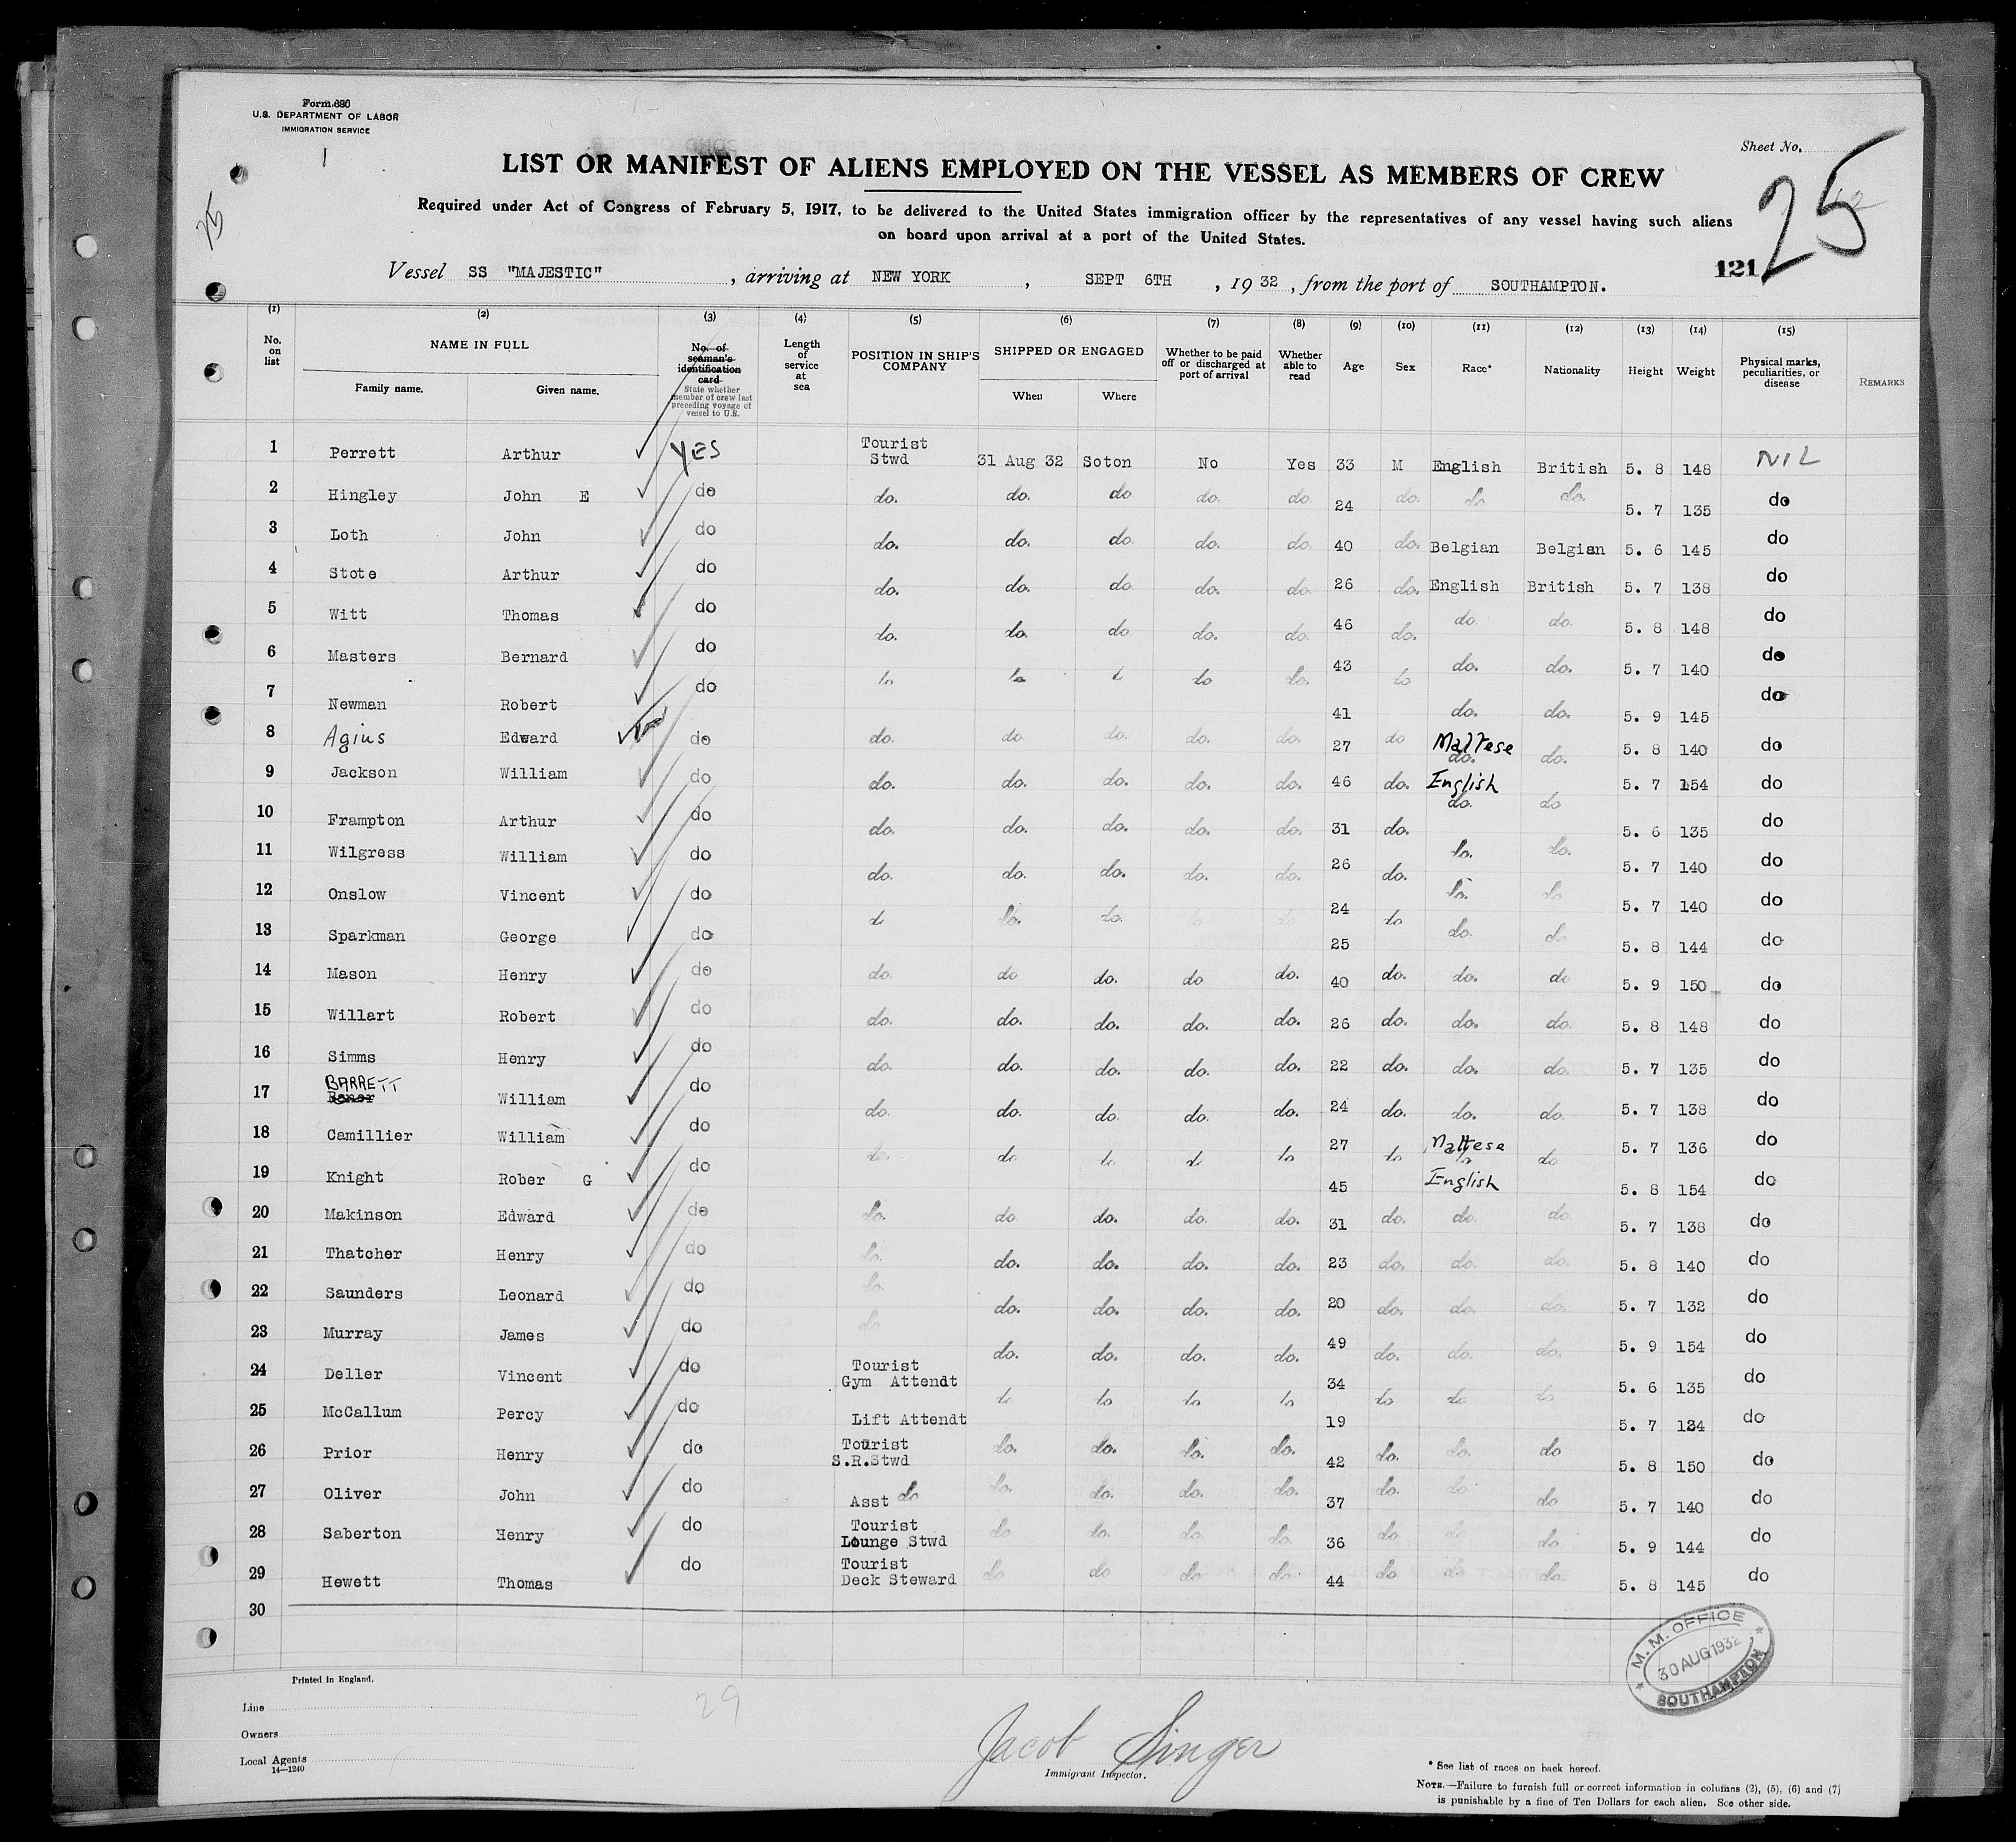 Form 680
U.S. DEPARTMENT OF LABOR
IMMIGRATION SERVICE
1
Sheet No.
25
LIST OR MANIFEST OF ALIENS EMPLOYED ON THE VESSEL AS MEMBERS OF CREW
Required under Act of Congress of February 5, 1917, to be delivered to the United States immigration officer by the representatives of any vessel having such aliens
on board upon arrival at a port of the United States.
121
Vessel SS "MAJESTIC", arriving at NEW YORK, SEPT 6TH, 1932, from the port of SOUTHAMPTON.
(1) (2) (3) (4) (5) (6) (7) (8) (9) (10) (11) (12) (13) (14) (15)
No. on list NAME IN FULL Family name. Given name. No. of seaman's identification card State whether member of crew last preceding voyage of vessel to U.S. Length of service at sea POSITION IN SHIP'S COMPANY SHIPPED OR ENGAGED When Where Whether to be paid off or discharged at port of arrival Whether able to read Age Sex Race* Nationality Height Weight Physical marks, peculiarities, or disease REMARKS
1 Perrett Arthur YES Tourist Stwd 31 Aug 32 Soton No Yes 33 M English British 5. 8 148 NIL
2 Hingley John E do do. do. do do. do. 24 do. do do. 5. 7 135 do
3 Loth John do do. do. do do. do. 40 do. Belgian Belgian 5. 6 145 do
4 Stote Arthur do do. do. do do. do. 26 do. English British 5. 7 138 do
5 Witt Thomas do do. do. do do. do. 46 do. do. do. 5. 8 148 do
6 Masters Bernard do do do do do do. 43 do do. do. 5. 7 140 do
7 Newman Robert do 41 do. do. 5. 9 145 do
8 Agius Edward do do. do. do. do. do. 27 do Maltese do. do. 5. 8 140 do
9 Jackson William do do. do. do. do. do. 46 do. English do. do 5. 7 154 do
10 Frampton Arthur do do. do. do. do. do. 31 do. 5. 6 135 do
11 Wilgress William do do. do. do. do. do. 26 do. do. do. 5. 7 140 do
12 Onslow Vincent do do do. do. do do 24 do do. do 5. 7 140 do
13 Sparkman George do 25 do. do 5. 8 144 do
14 Mason Henry do do. do do. do do. 40 do. do. do 5. 9 150 do
15 Willart Robert do do. do. do. do. do. 26 do. do. do. 5. 8 148 do
16 Simms Henry do do. do. do. do. do. 22 do. do. do. 5. 7 135 do
17 BARRETT William do do. do. do. do. do. 24 do. do. do. 5. 7 138 do
18 Camillier William do do. do do do do 27 do Maltese do do 5. 7 136 do
19 Knight Rober G do 45 English 5. 8 154 do
20 Makinson Edward do do. do do. do. do. 31 do. do. do. 5. 7 138 do
21 Thatcher Henry do do. do. do. do. do. 23 do. do. do. 5. 8 140 do
22 Saunders Leonard do do. do. do. do. do. 20 do. do. do. 5. 7 132 do
23 Murray James do do do. do. do. do. 49 do. do. do. 5. 9 154 do
24 Deller Vincent do Tourist Gym Attendt do do do do 34 do do do 5. 6 135 do
25 McCallum Percy do Lift Attendt 19 5. 7 134 do
26 Prior Henry do Tourist S.R.Stwd do. do. do. do. 42 do. do. do 5. 8 150 do
27 Oliver John do Asst do do. do. do. do. 37 do. do. do 5. 7 140 do
28 Saberton Henry do Tourist Lounge Stwd do. do. do. do. 36 do do do 5. 9 144 do
29 Hewett Thomas do Tourist Deck Steward do do do do 44 do do do. 5. 8 145 do
30
M. M. OFFICE
30 AUG 1932
SOUTHAMPTON
Printed in England.
29
Line
Owners
Local Agents
14—1240
Jacob Singer
Immigrant Inspector.
* See list of races on back hereof.
NOTE.—Failure to furnish full or correct information in columns (2), (5), (6) and (7)
is punishable by a fine of Ten Dollars for each alien. See other side.